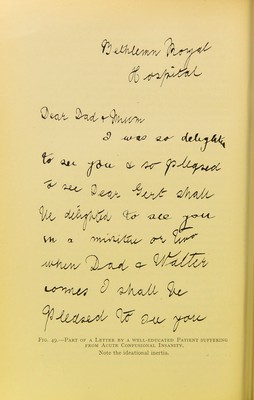 Bethlemn Royal
Hospital
Dear Dad & Mum
I was so delighted
to see you & so pleased
to see Dear Gert shall
be delighted to see you
in a minitue or two
when Dad & Walter
comes I shall be
pleased to see you
Fig. 49.—Part of a Letter by a well educated Patient suffering
from Acute Confusional Insanity.
Note the ideational inertia.